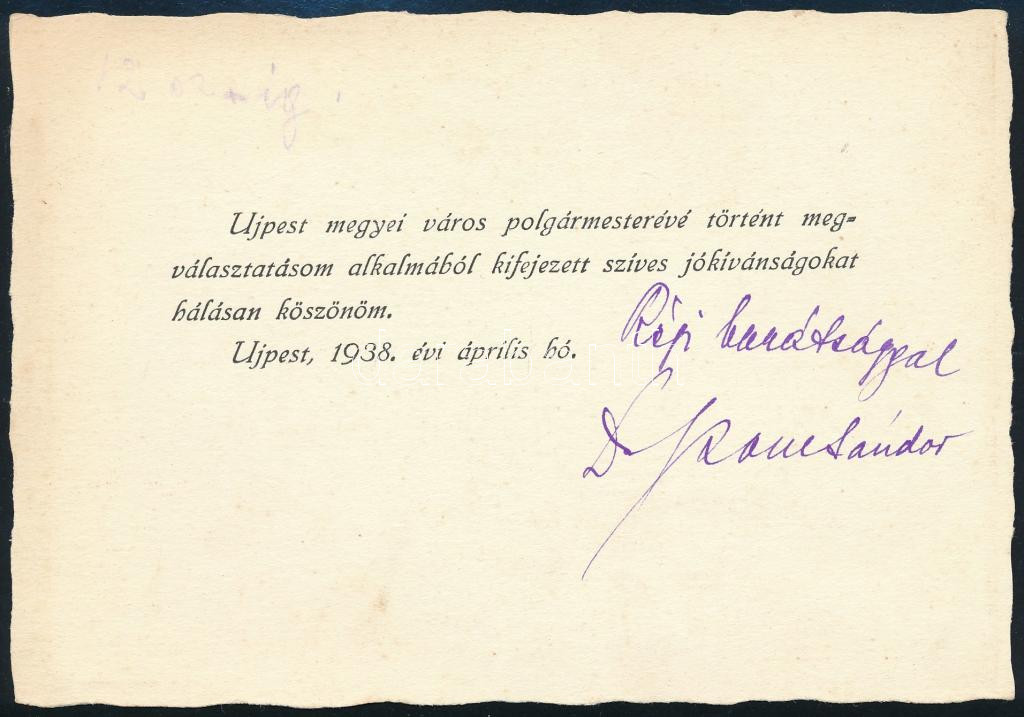 Ujpest megyei város polgármesterévé történt meg=
választatásom alkalmából kifejezett szíves jókívánságokat
hálásan köszönöm.
Ujpest, 1938. évi április hó.
Régi barátsággal
Dr Sándor